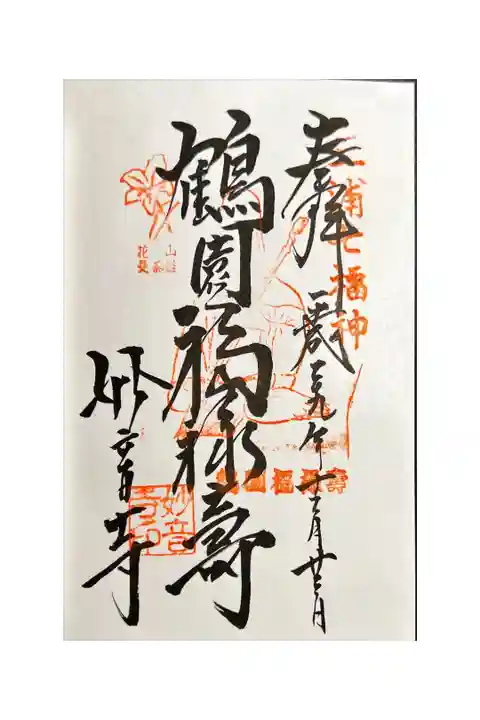 奉拝
三浦七福神
平成二九年十二月廿三日
鶴園福禄寿
鶴園福禄壽
妙音寺
妙音
寺印